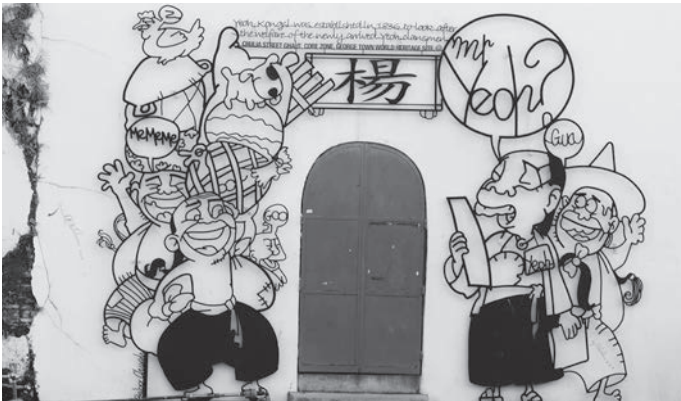 Yeoh Kongsi was established in 1836 to look after
the welfare of the newly arrived Yeoh clansmen
CHULIA STREET GHAUT, CORE ZONE, GEORGE TOWN WORLD HERITAGE SITE
楊
Mr
Yeoh?
Me Me Me
Gua
Yeoh